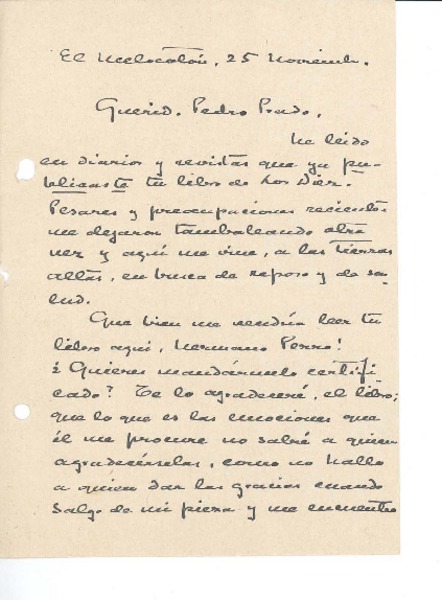 El Melocotón, 25 Noviembre.
Querido Pedro Prado,
He leido
en diarios y revistas que ya pu-
blicaste tu libro de Los Diez.
Pesares y preocupaciones recientes
me dejaron tambaleando otra
vez y aquí me vine, a las tierras
altas, en busca de reposo y de sa-
lud.
Que bien me vendría leer tu
libro aquí, hermano Perro!
¿Quieres mandármelo certifi-
cado? Te lo agradeceré, el libro;
que lo que es las emociones que
él me procure no sabré a quien
agradecérselas, como no hallo
a quien dar las gracias cuando
salgo de mi pieza y me encuentro